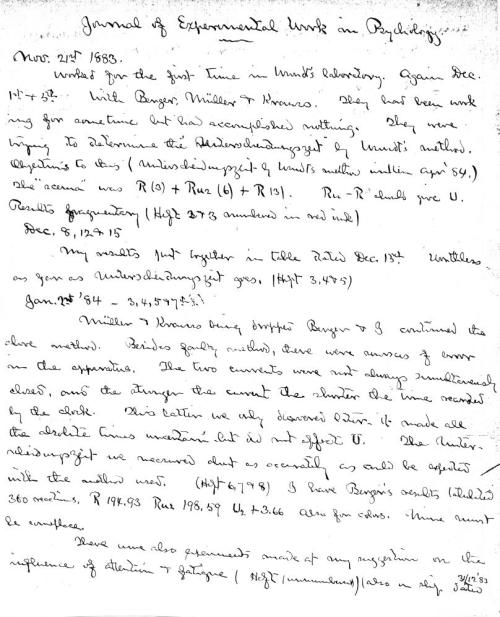 Journal of Experimental Work in Psychology
Nov. 21st 1883.
Worked for the first time in Wundt's laboratory. Again Dec.
1st + 5th. With Berger, Müller & Krauss. They had been work
ing for sometime but had accomplished nothing. They were
trying to determine the Unterscheidungszeit by Wundt's method.
Objections to this (Unterscheidungszeit by Wundt's method written Apr '84.)
The "scema" was R(3) + Ru2(6) + R(3). Ru - R should give U.
Results fragmentary (Heft 2 & 3 numbered in red ink)
Dec. 8, 12 & 15
My results put together in table dated Dec. 15th. Worthless
as far as Unterscheidungszeit goes. (Heft 3, 4 & 5)
Jan. '84 - 3, 4, 5
Müller & Krauss being dropped Berger & I continued the
above method. Besides faulty method, there were sources of error
in the apparatus. The two currents were not always simultaneously
closed, and the stronger the current the shorter the time recorded
by the clock. This latter we only discovered later - it made all
the absolute times uncertain but did not affect U. The Unter-
scheidungszeit we measured about as accurately as could be expected
with the method used. (Heft 6, 7 & 8) I have Berger's results tabulated
360 reactions, R 194.93 Ru2 198.59 U2 + 3.66 also for colors. Mine must
be someplace.
There were also experiments made at my suggestion on the
influence of attention & fatigue (Heft 1 unnumbered) (also on slip dated 31/12 '83